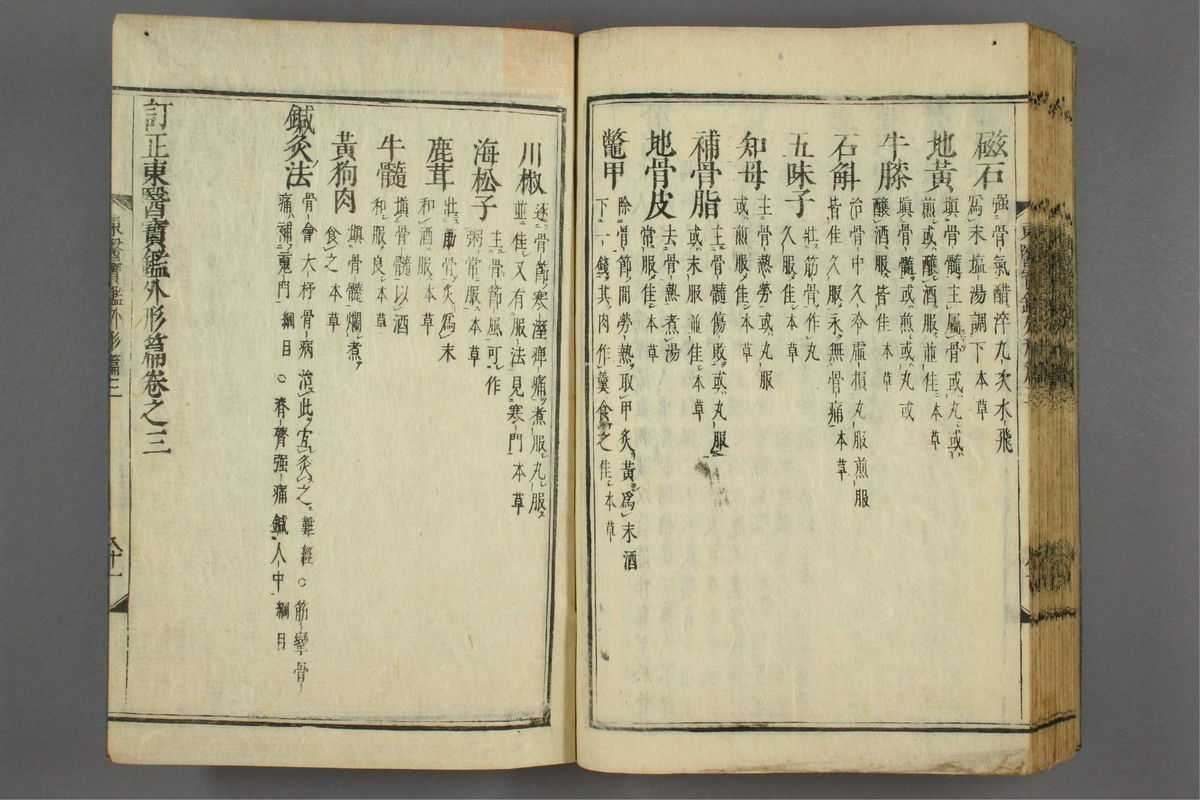 磁石
强骨氣醋淬九次水飛
爲末塩湯調下本草
地黃
塡骨髓主屬骨或丸或
煎或釀酒服並佳本草
牛膝
塡骨髓或煎或丸或
釀酒服皆佳本草
石斛
治骨中久冷虛損丸服煎服
皆佳久服永無骨痛本草
五味子
壯筋骨作丸
久服佳本草
知母
主骨熱勞或丸服
或煎服佳本草
補骨脂
主骨髓傷敗或丸服
或末服並佳本草
地骨皮
去骨熱煮湯
常服佳本草
鼈甲
除骨節間勞熱取甲炙黃爲末酒
下一錢其肉作羹食之佳本草
川椒
逐骨節寒溼痺痛煮服丸服
並佳又有服法見寒門本草
海松子
主骨節風可作
粥常服本草
鹿茸
壯筋骨炙爲末
和酒服本草
牛髓
塡骨髓以酒
和服良本草
黃狗肉
塡骨髓爛煮
食之本草
鍼灸法
骨會大杼骨病治此宜灸之難經○筋攣骨
痛補䰟門綱目○脊膂强痛鍼人中綱目
訂正東醫寶鑑外形篇卷之三
東醫寶鑑外形篇三
八十一